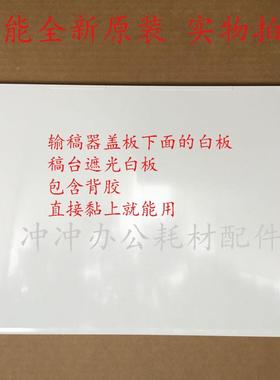 能全新原装 实物拍
输稿器盖板下面的白板
稿台遮光白板
包含背胶
直接黏上就能用
冲冲办公耗材配件